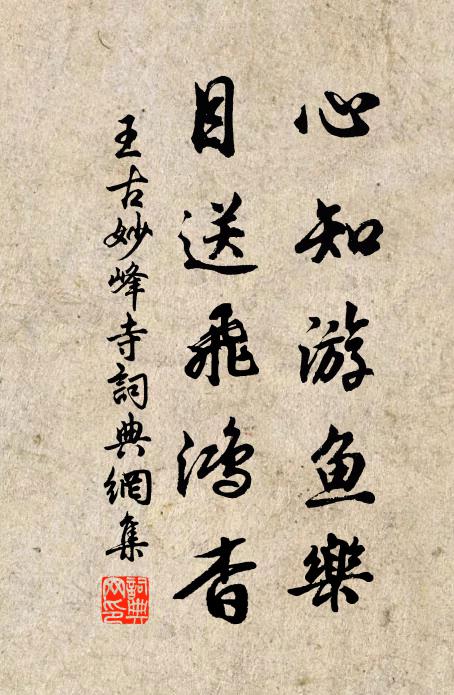 心知游鱼樂
目送飛鴻杳
王古妙峰寺詞典網集
詞典
网印